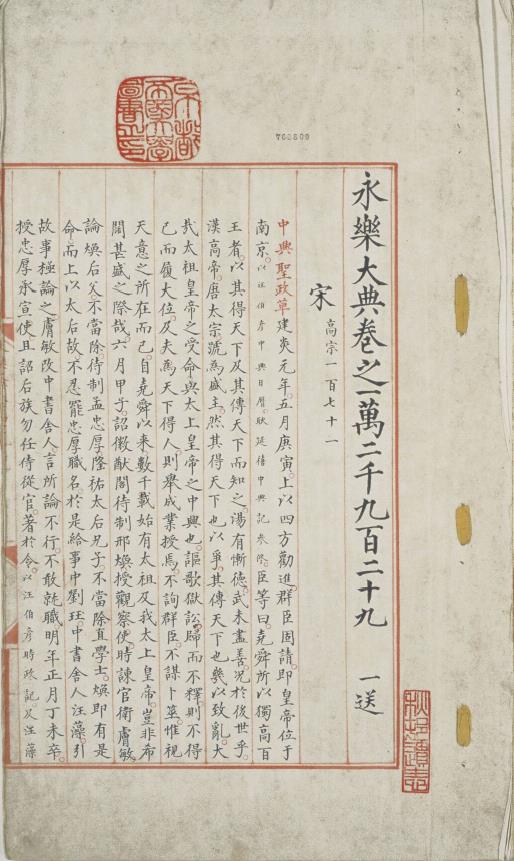 京都
帝國大學
圖書之印
永樂大典卷之一萬二千九百二十九 一送
宋 高宗一百七十一
中興聖政草建炎元年。五月庚寅。上以四方勸進。群臣固請。即皇帝位于
南京。以汪伯彦中興日曆。耿延禧中興記參修。臣等曰。堯舜所以獨高百
王者。以其得天下及其傳天下而知之。湯有慚德。武未盡善。况於後世乎。
漢高帝。唐太宗。號為盛主。然其得天下也以爭。其傳天下也幾以致亂。大
哉太祖皇帝之受命。與太上皇帝之中興也。謳歌獄訟。歸而不釋。則不得
已而履大位。及夫為天下得人。則舉成業授焉。不詢群臣。不謀卜筮。惟視
天意之所在而已。自堯舜以来。數千載始有太祖及我太上皇帝。豈非希
闊甚盛之際哉。六月甲子。詔徽猷閣待制邢煥授觀察使。時諫官衛膚敏
論煥后父。不當除待制。孟忠厚隆祐太后兄子。不當除直學士。煥即有是
命。而上以太后故。不忍罷忠厚職名。於是給事中劉珏。中書舍人汪藻。引
故事極論之。膚敏改中書舍人。言所論不行。不敢就職。明年正月丁未。卒
授忠厚承宣使。且詔后族勿任侍從官。著於令。以汪伯彦時政記。及汪藻